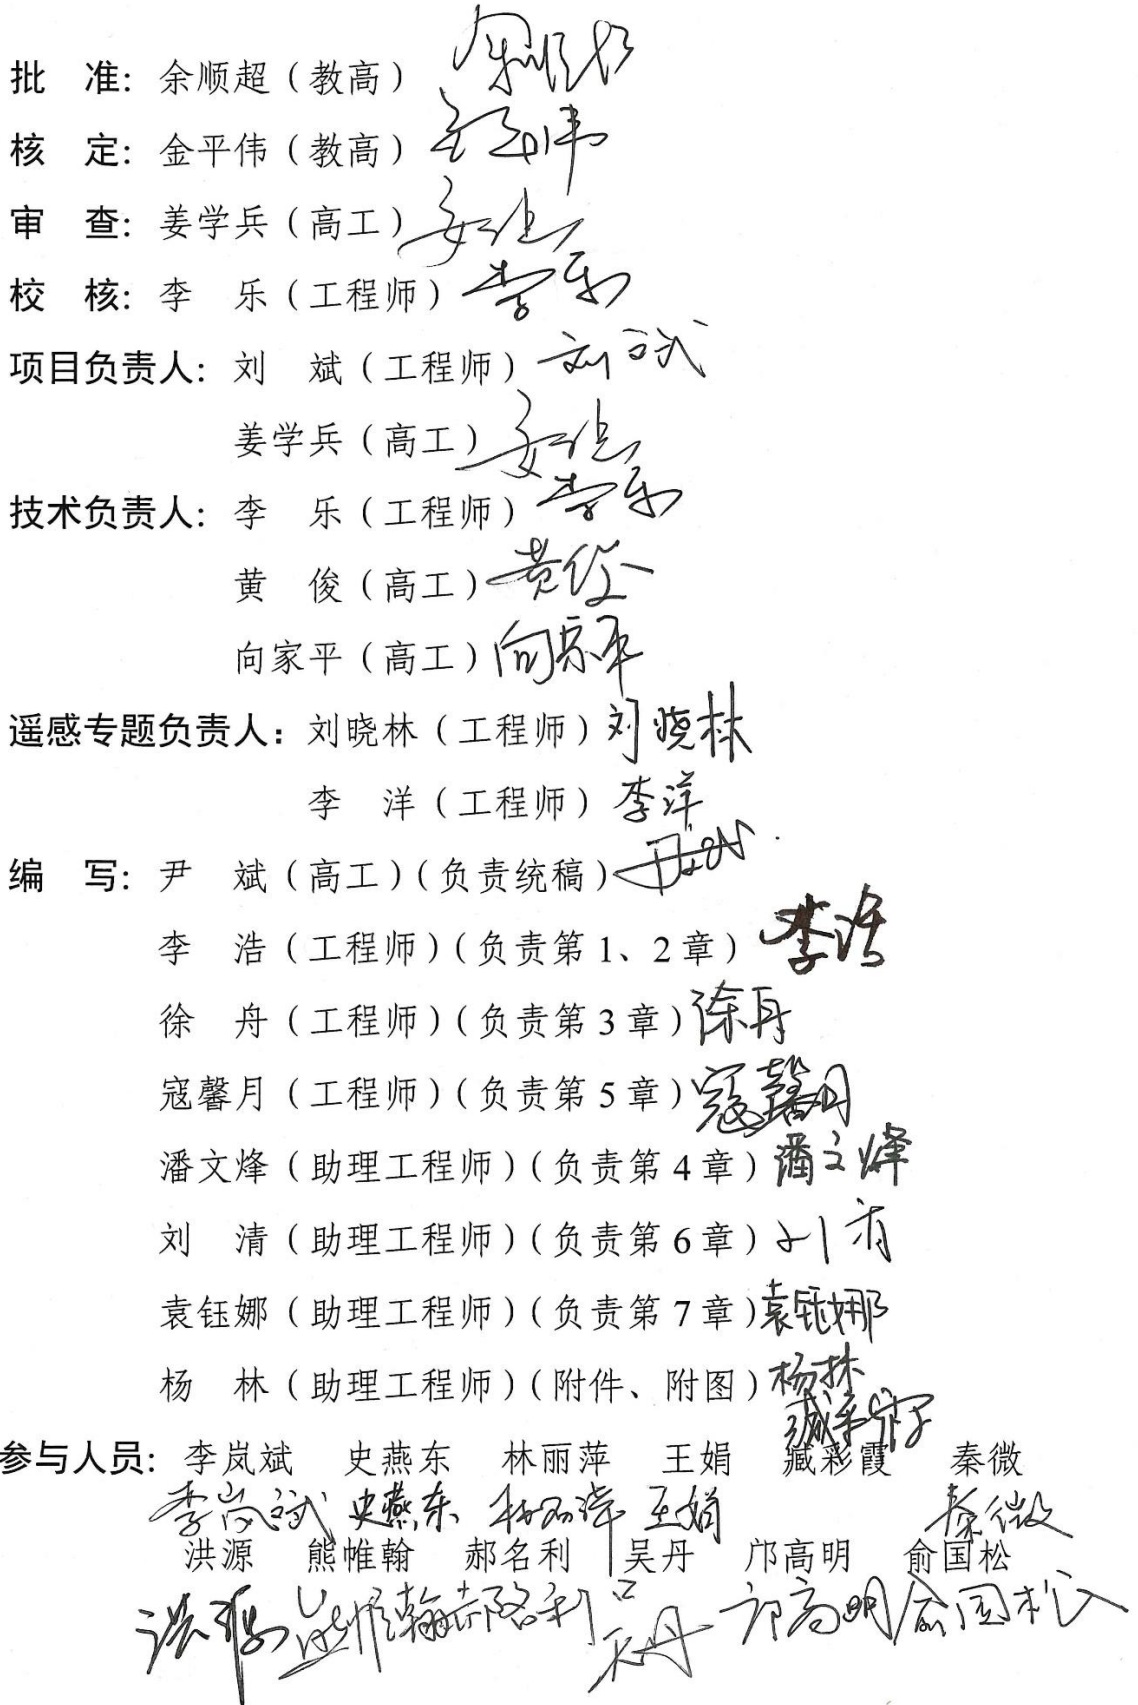 批　准：余顺超（教高） 余顺超
核　定：金平伟（教高） 金平伟
审　查：姜学兵（高工） 姜学兵
校　核：李　乐（工程师） 李乐
项目负责人：刘　斌（工程师） 刘斌
姜学兵（高工） 姜学兵
技术负责人：李　乐（工程师） 李乐
黄　俊（高工） 黄俊
向家平（高工） 向家平
遥感专题负责人：刘晓林（工程师） 刘晓林
李　洋（工程师） 李洋
编　写：尹　斌（高工）（负责统稿） 尹斌
李　浩（工程师）（负责第 1、2 章） 李浩
徐　舟（工程师）（负责第 3 章） 徐舟
寇馨月（工程师）（负责第 5 章） 寇馨月
潘文烽（助理工程师）（负责第 4 章） 潘文烽
刘　清（助理工程师）（负责第 6 章） 刘清
袁钰娜（助理工程师）（负责第 7 章） 袁钰娜
杨　林（助理工程师）（附件、附图） 杨林
臧彩霞
参与人员：李岚斌　史燕东　林丽萍　王娟　臧彩霞　秦微
李岚斌　史燕东　林丽萍　王娟　秦微
洪源　熊帷翰　郝名利　吴丹　邝高明　俞国松
洪源　熊帷翰　郝名利　吴丹　邝高明　俞国松